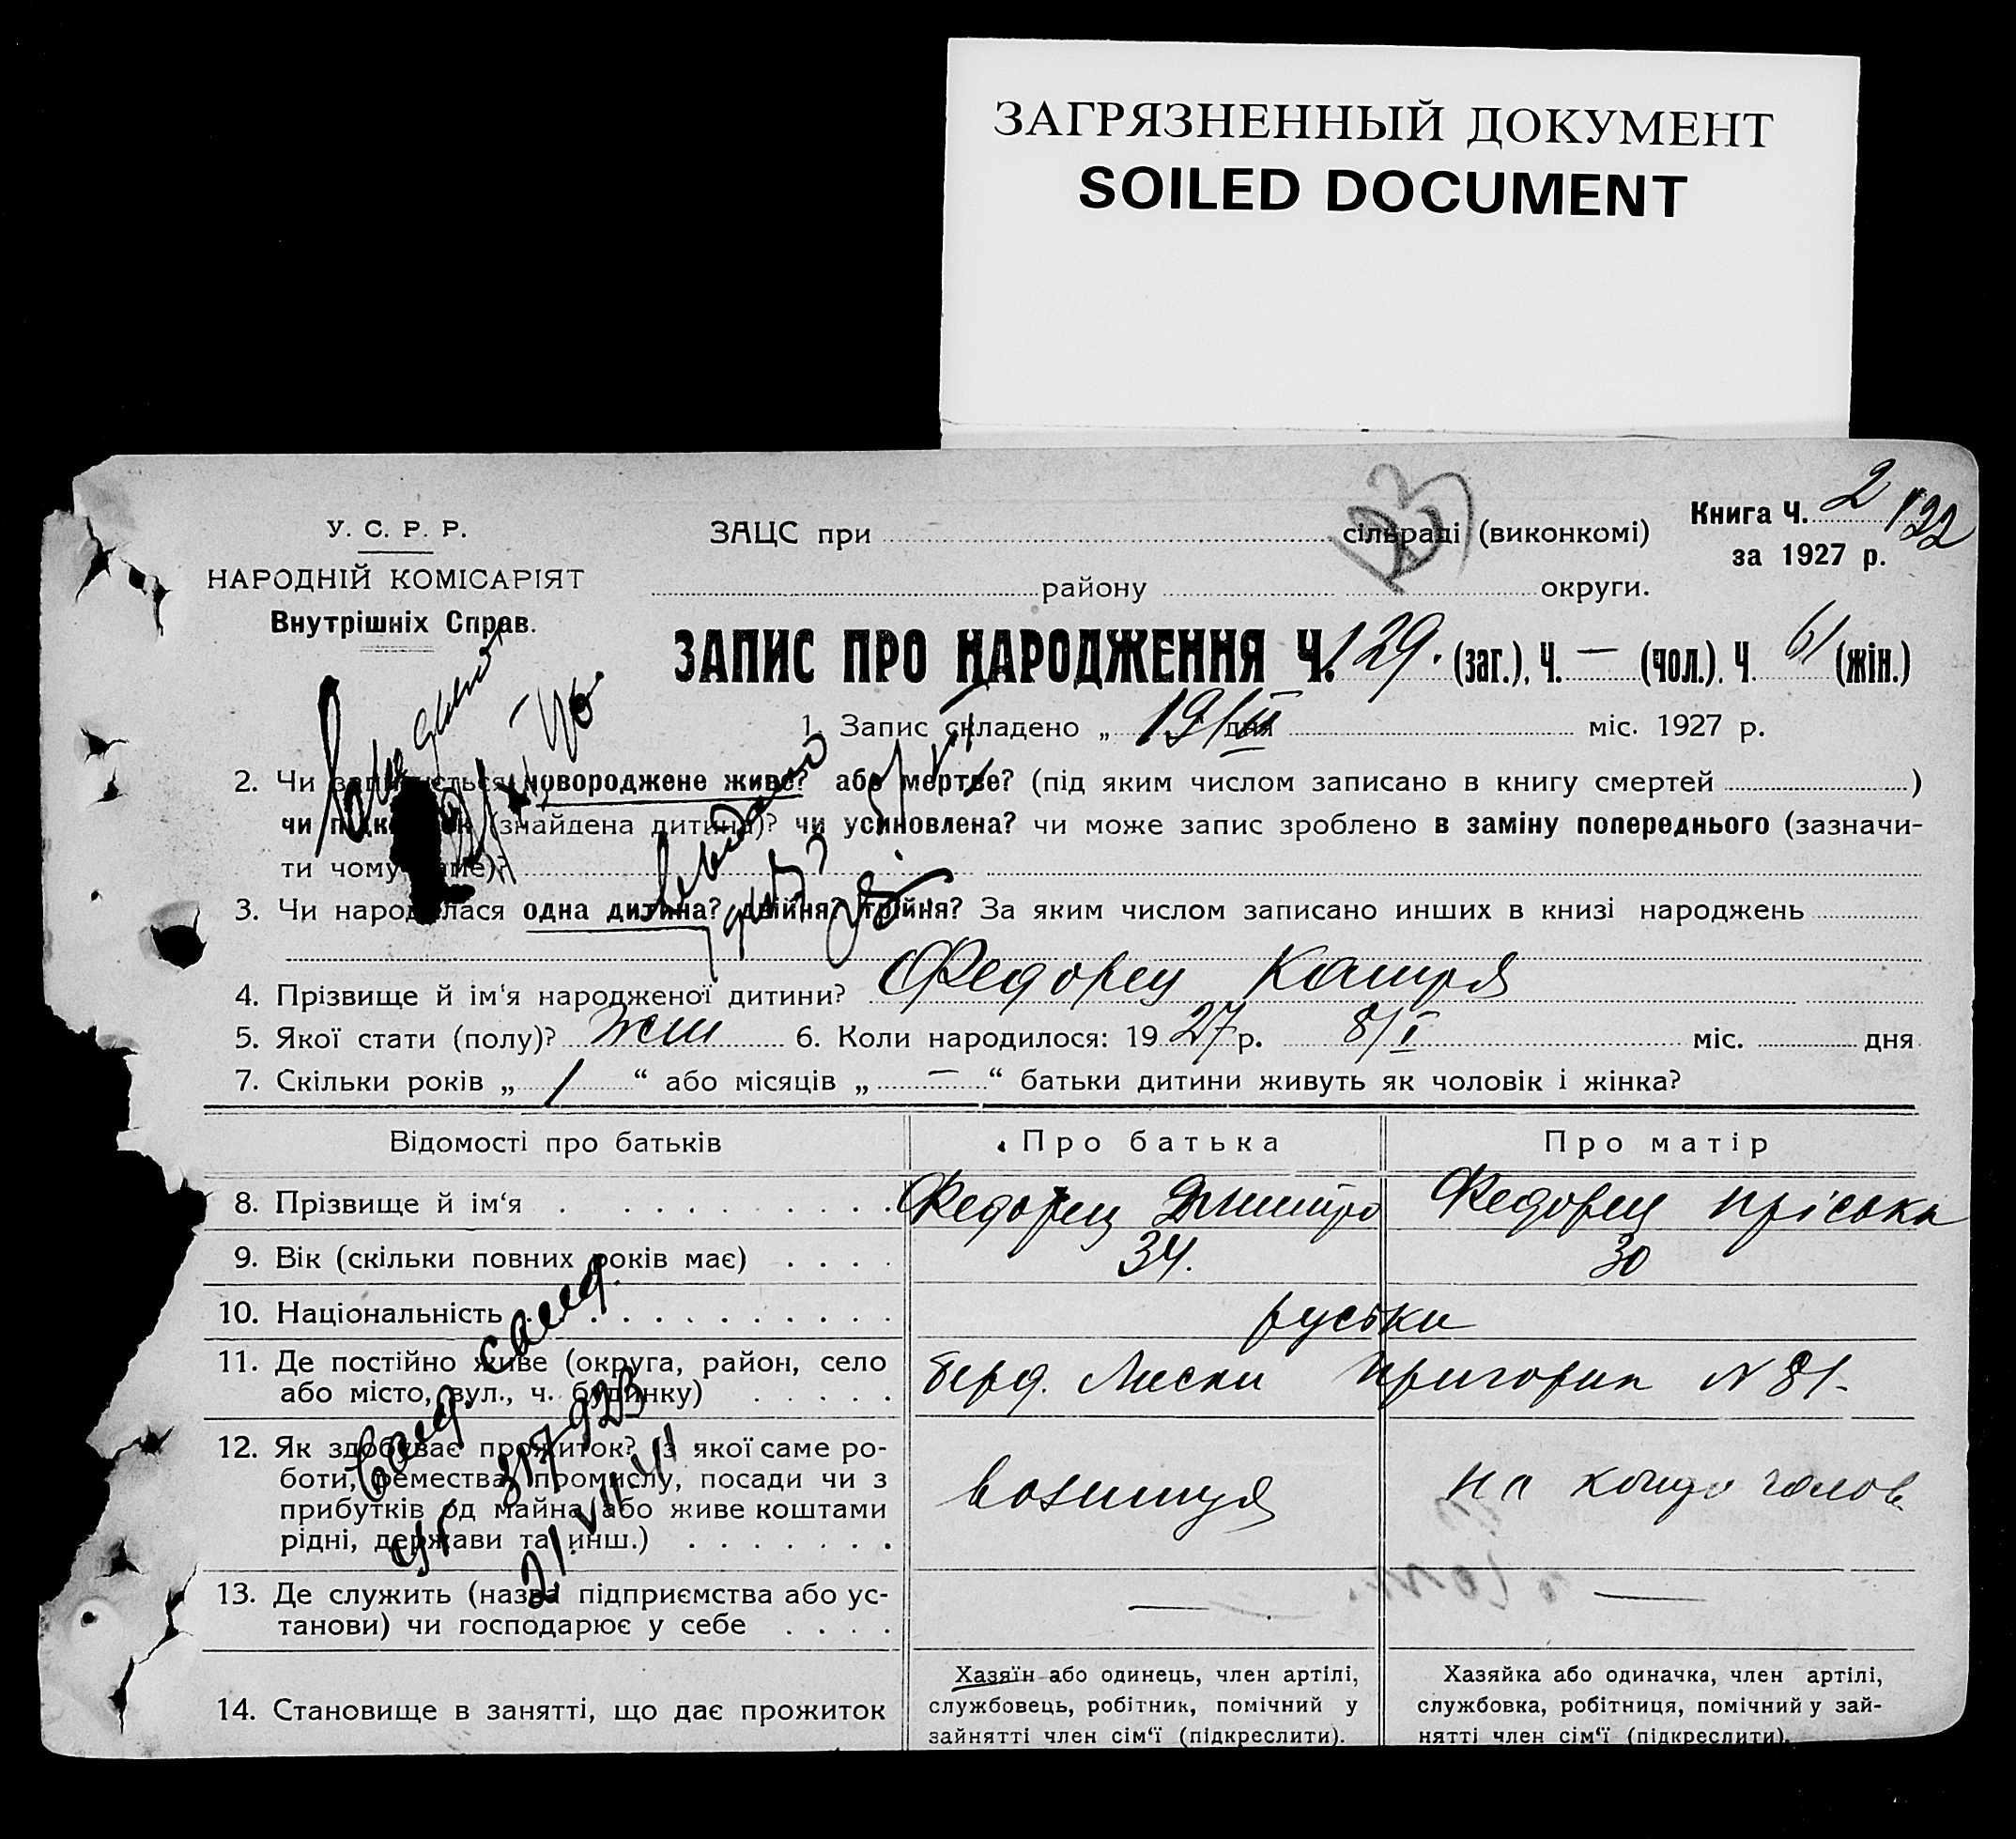 ЗАГРЯЗНЕННЫЙ ДОКУМЕНТ
SOILED DOCUMENT
У. С. Р. Р.
НАРОДНІЙ КОМІСАРІЯТ
Внутрішніх Справ.
ЗАЦС при сільраді (виконкомі)
району округи.
Книга Ч. 2 / 122
за 1927 р.
ЗАПИС ПРО НАРОДЖЕННЯ Ч. 129. (заг.), Ч. — (чол.), Ч. 61 (жін.)
1. Запис складено „ 19/III дня міс. 1927 р.
2. Чи записується новороджене живе? або мертве? (під яким числом записано в книгу смертей )
чи підкидьок (знайдена дитина)? чи усиновлена? чи може запис зроблено в заміну попереднього (зазначи-
ти чому саме)?
3. Чи народилася одна дитина? двійня? трійня? За яким числом записано инших в книзі народжень
4. Прізвище й ім‘я народженої дитини? Федорец Катря
5. Якої стати (полу)? жін 6. Коли народилося: 1927 р. 8/I міс. дня
7. Скільки років „ 1 “ або місяців „ — “ батьки дитини живуть як чоловік і жінка?
Відомості про батьків Про батька Про матір
8. Прізвище й ім‘я Федорец Дмитро Федорец Пріська
9. Вік (скільки повних років має) 34. 30
10. Національність руські
11. Де постійно живе (округа, район, село
або місто, вул., ч. будинку)
Берд. Лиски Пригорна N 81-
12. Як здобуває прожиток? (з якої саме ро-
боти, ремества, промислу, посади чи з
прибутків од майна або живе коштами
рідні, держави та инш.)
на голов
13. Де служить (назва підприємства або ус-
танови) чи господарює у себе
— —
14. Становище в занятті, що дає прожиток
Хазяїн або одинець, член артілі,
службовець, робітник, помічний у
зайнятті член сім‘ї (підкреслити).
Хазяйка або одиначка, член артілі,
службовка, робітниця, помічний у зай-
нятті член сім‘ї (підкреслити).